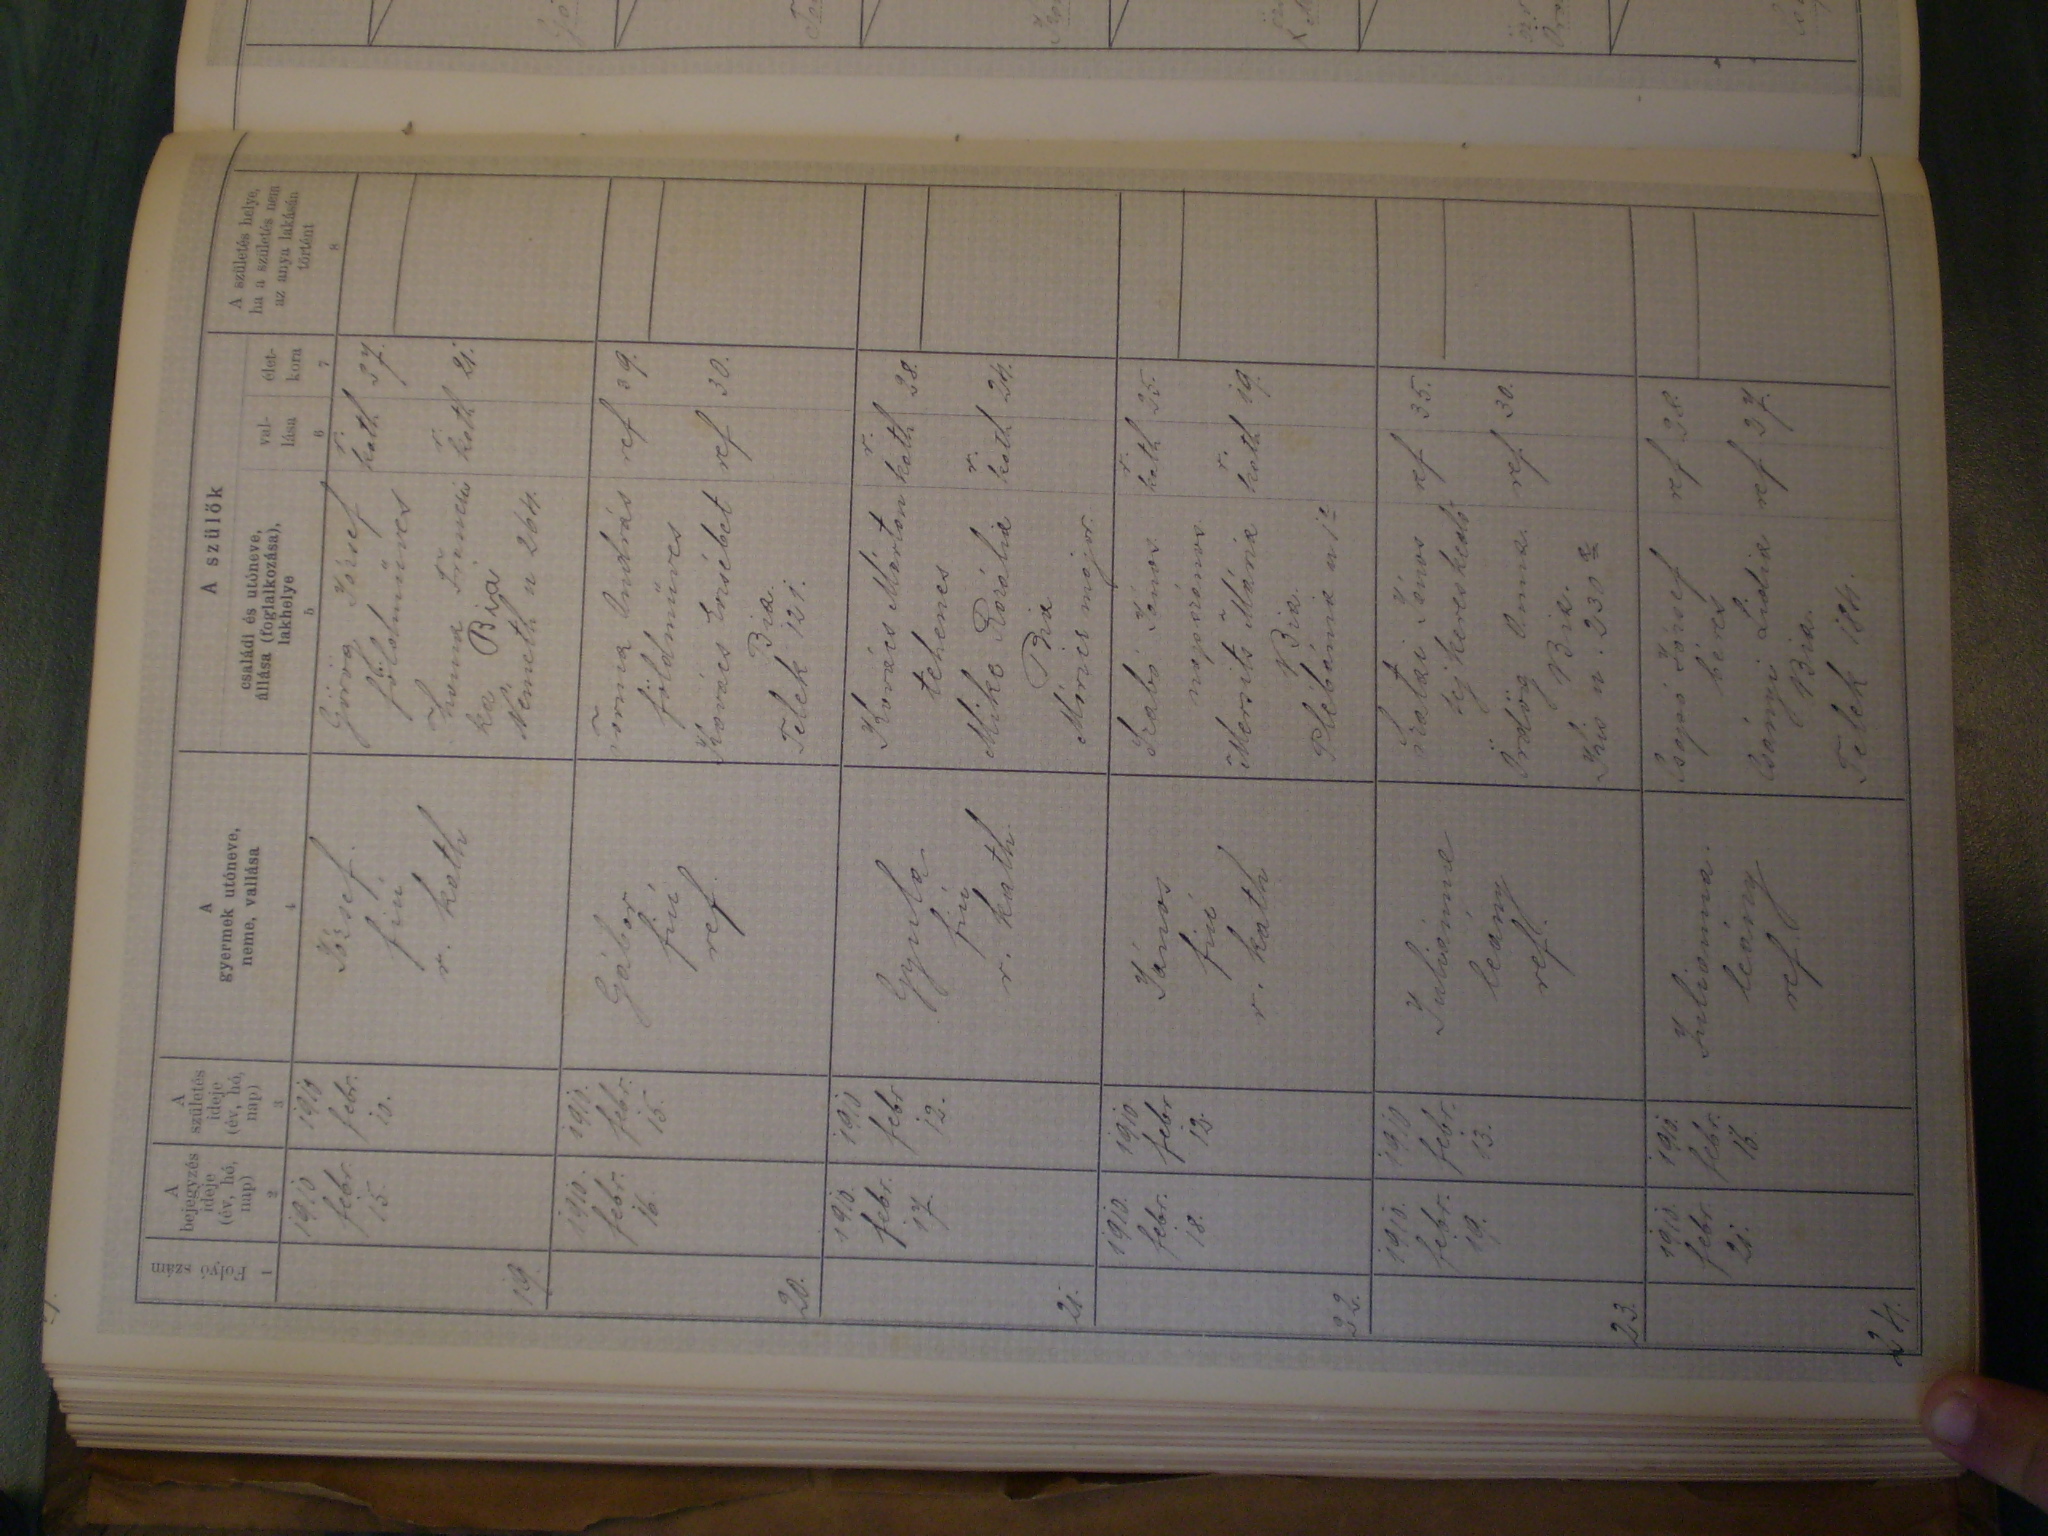 A szülők
Folyó szám
A
bejegyzés
ideje
(év, hó,
nap)
A
születés
ideje
(év, hó,
nap)
A
gyermek utóneve,
neme, vallása
családi és utóneve,
állása (foglalkozása),
lakhelye
val-
lása
élet-
kora
A születés helye,
ha a születés nem
az anya lakásán
történt
1
2
3
4
5
6
7
8
19.
1910
febr.
15.
1910
febr.
10.
József.
fiú
r. kath
Görög József
földmüves
ka Bia
Németh u 264.
r.
kath
37.
r.
kath
21.
20.
1910.
febr.
16.
1910.
febr.
15.
Gábor
fiú
ref.
Torma András
földmüves
Kovács Erzsébet
Bia.
Telek 121.
ref
39.
ref
30.
21.
1910.
febr.
17.
1910
febr
12.
Gyula.
fiú
r. kath.
Kovács Márton
tehenes
Mike Rozália
Bia
Móricz major.
r.
kath
28.
r.
kath
24.
22.
1910.
febr.
18.
1910.
febr
12.
János
fiú
r. kath
Szabó János
napszámos
Mária
Bia.
Plébánia u 1
r.
kath
25.
r.
kath
19.
23.
1910.
febr.
19.
1910
febr.
13.
Juliánna
leány
ref.
Szalai János
tejkereskedő
Ördög Anna.
Bia.
Kis u. 230 a
ref
35.
ref
30.
24.
1910.
febr.
21.
1910.
febr.
16.
Julianna.
leány
ref.
Csapó József
béres
Csányi Lidia
Bia.
Telek 184.
ref
38.
ref
37.